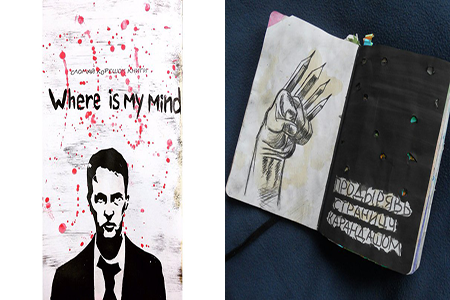 СЛОМАЙ КОРЕШОК КНИГИ
Where is my Mind
ПРОДЫРЯВЬ
СТРАНИЦУ
КАРАНДАШОМ